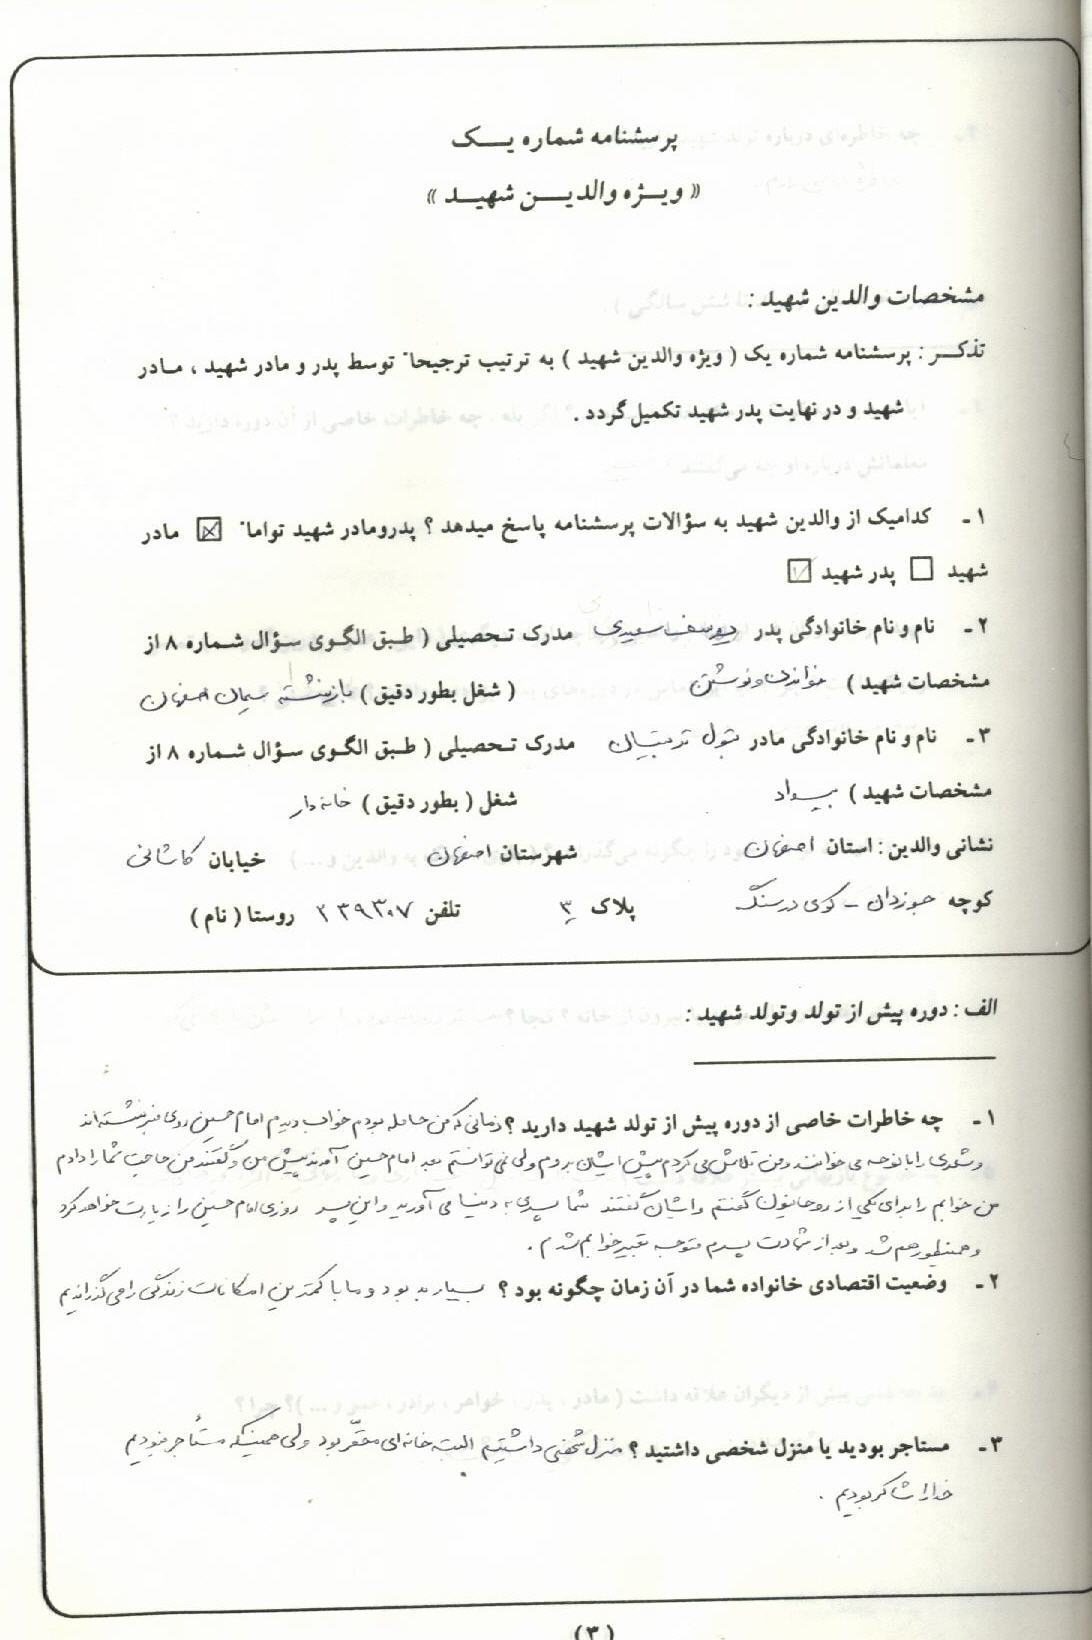 پرسشنامه شماره یک
« ویژه والدین شهید »
مشخصات والدین شهید :
تذکر : پرسشنامه شماره یک ( ویژه والدین شهید ) به ترتیب ترجیحاً توسط پدر و مادر شهید ، مادر
شهید و در نهایت پدر شهید تکمیل گردد .
۱ - کدامیک از والدین شهید به سؤالات پرسشنامه پاسخ میدهد ؟ پدرومادر شهید تواماً ☒ مادر
شهید ☐ پدر شهید ☑
۲ - نام و نام خانوادگی پدر سعیدی مدرک تحصیلی ( طبق الگوی سؤال شماره ۸ از
مشخصات شهید ) خواندن و نوشتن ( شغل بطور دقیق ) بازنشسته سیمان اصفهان
۳ - نام و نام خانوادگی مادر بتول مدرک تحصیلی ( طبق الگوی سؤال شماره ۸ از
مشخصات شهید ) بیسواد شغل ( بطور دقیق ) خانه دار
نشانی والدین : استان اصفهان شهرستان اصفهان خیابان کاشانی
کوچه جوزدان - کوی درسنگ پلاک ۳ تلفن ۳۳۹۳۰۷ روستا ( نام )
الف : دوره پیش از تولد وتولد شهید :
۱ - چه خاطرات خاصی از دوره پیش از تولد شهید دارید ؟ زمانی که من حامله بودم خواب دیدم امام حسین روی منبر نشسته اند
و شعری را با نوحه می خوانند ومن تلاش می کردم پیش ایشان بروم ولی نمی توانستم بعد امام حسین آمدند پیش من و گفتند من حاجت شما را دادم
من خوابم را برای یکی از روحانیون گفتم و ایشان گفتند شما پسری به دنیا می آورید و این پسر روزی امام حسین را زیارت خواهد کرد
و همینطور هم شد و بعد از شهادت پسرم متوجه تعبیر خوابم شدم .
۲ - وضعیت اقتصادی خانواده شما در آن زمان چگونه بود ؟ بسیار بد بود و ما با کمترین امکانات زندگی را می گذراندیم
۳ - مستاجر بودید یا منزل شخصی داشتید ؟ منزل شخصی داشتیم البته خانه ای محقّر بود ولی همینکه مستأجر نبودیم
خدا را شاکر بودیم .
(۳)